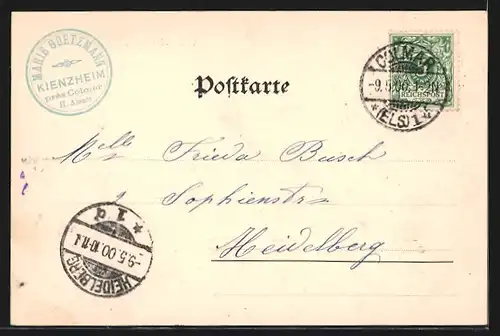 MARIE GOETZMANN
KIENZHEIM
près Colmar
H. Alsace
Postkarte
COLMAR
-9.5.00.1-2N
*(ELS)1
REICHSPOST
Melle Frieda Busch
2 Sophienstr.
Heidelberg
HEIDELBERG
-9.5.00.10-11
* 1 d